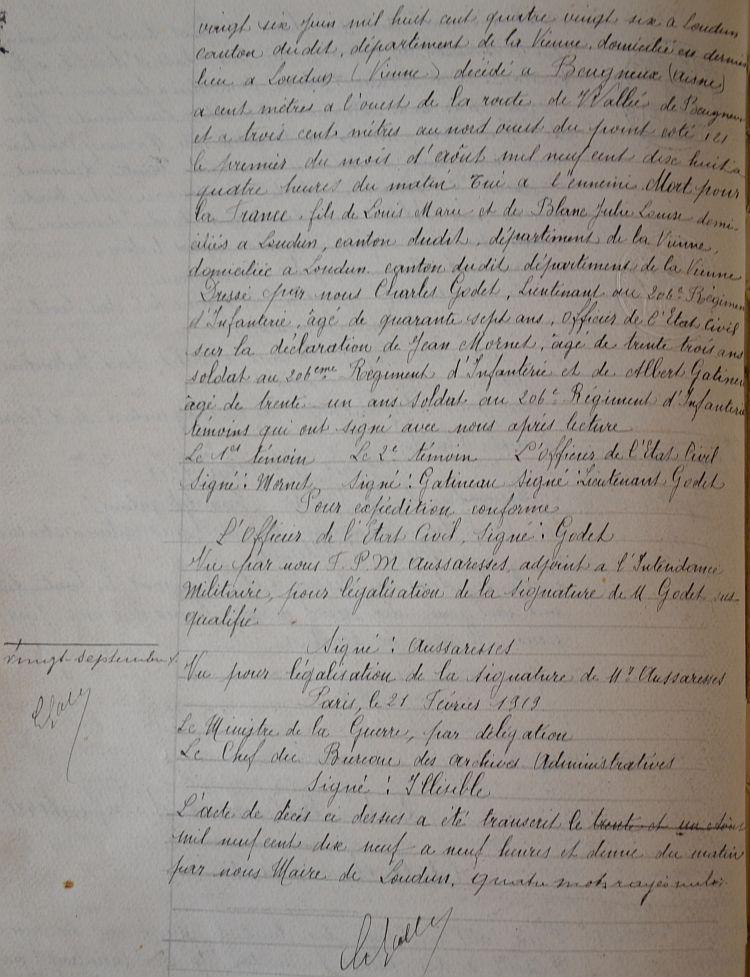 vingt six juin mil huit cent quatre vingt six à Loudun
canton dudit, département de la Vienne, domicilié en dernier
lieu à Loudun (Vienne) décédé à Beugneux (Aisne)
a cent mètres a l'ouest de la route de Wallée de Beugneux
et a trois cent mètres au nord ouest du point coté 121
le premier du mois d'août mil neuf cent dix huit a
quatre heures du matin Tué a l'ennemi Mort pour
la France. fils de Louis Marie et de Blanc Julie Louise domi-
ciliés a Loudun, canton dudit, département de la Vienne,
domiciliée à Loudun canton dudit département de la Vienne
Dressé par nous Charles Godet, Lieutenant au 206e Régiment
d'Infanterie, âgé de quarante sept ans, Officier de l'Etat Civil
sur la déclaration de Jean Mornet, âgé de trente trois ans
soldat au 206eme Régiment d'Infanterie et de Albert Gatineau
âgé de trente un ans soldat au 206e Régiment d'Infanterie
témoins qui ont signé avec nous après lecture
Le 1er témoin Le 2e témoin L'Officier de l'Etat Civil
Signé: Mornet Signé: Gatineau Signé: Lieutenant Godet
Pour expédition conforme
L'Officier de l'Etat Civil, Signé: Godet
Vu par nous F. P. M Aussaresses, adjoint a l'Intendance
Militaire, pour légalisation de la signature de M Godet sus-
qualifié
Signé: Aussaresses
Vu pour légalisation de la signature de Mr Aussaresses
Paris, le 21 Février 1919
Le Ministre de la Guerre, par délégation
Le Chef du Bureau des archives Administratives
Signé: Illisible
L'acte de décès ci dessus a été transcrit le trente et un août
mil neuf cent dix neuf a neuf heures et demie du matin
par nous Maire de Loudun, quatre mots rayés nuls.
vingt septembre